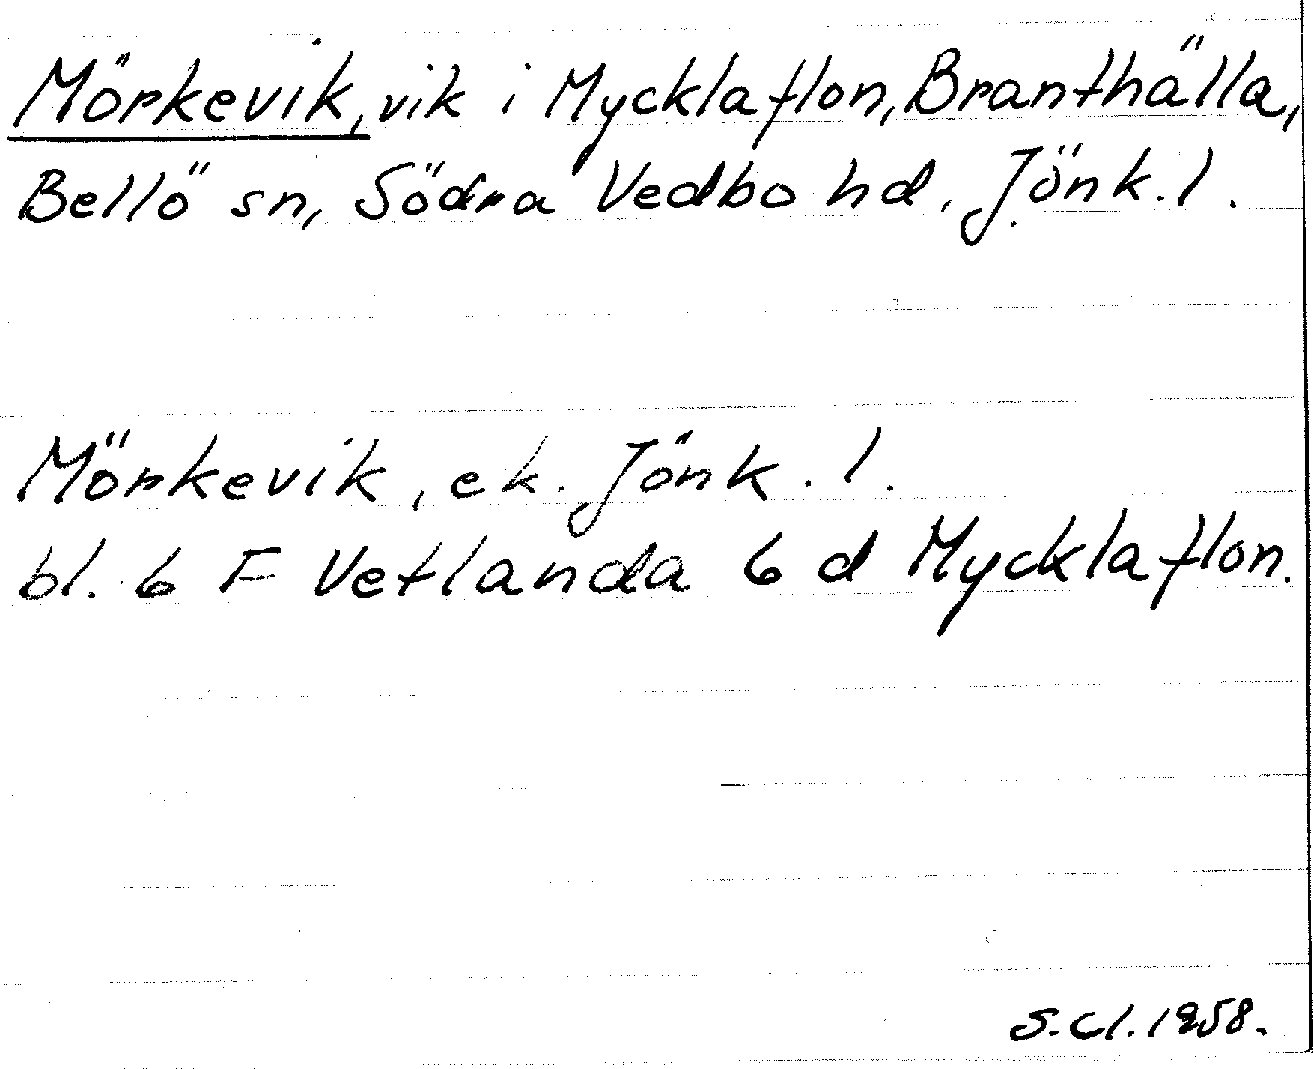 Mörkevik, vik i Mycklaflon, Branthälla,
Bellö sn, Södra Vedbo hd, Jönk. l.
Mörkevik, ek. Jönk. l.
bl. 6 F Vetlanda 6 d Mycklaflon.
S. Cl. 1958.